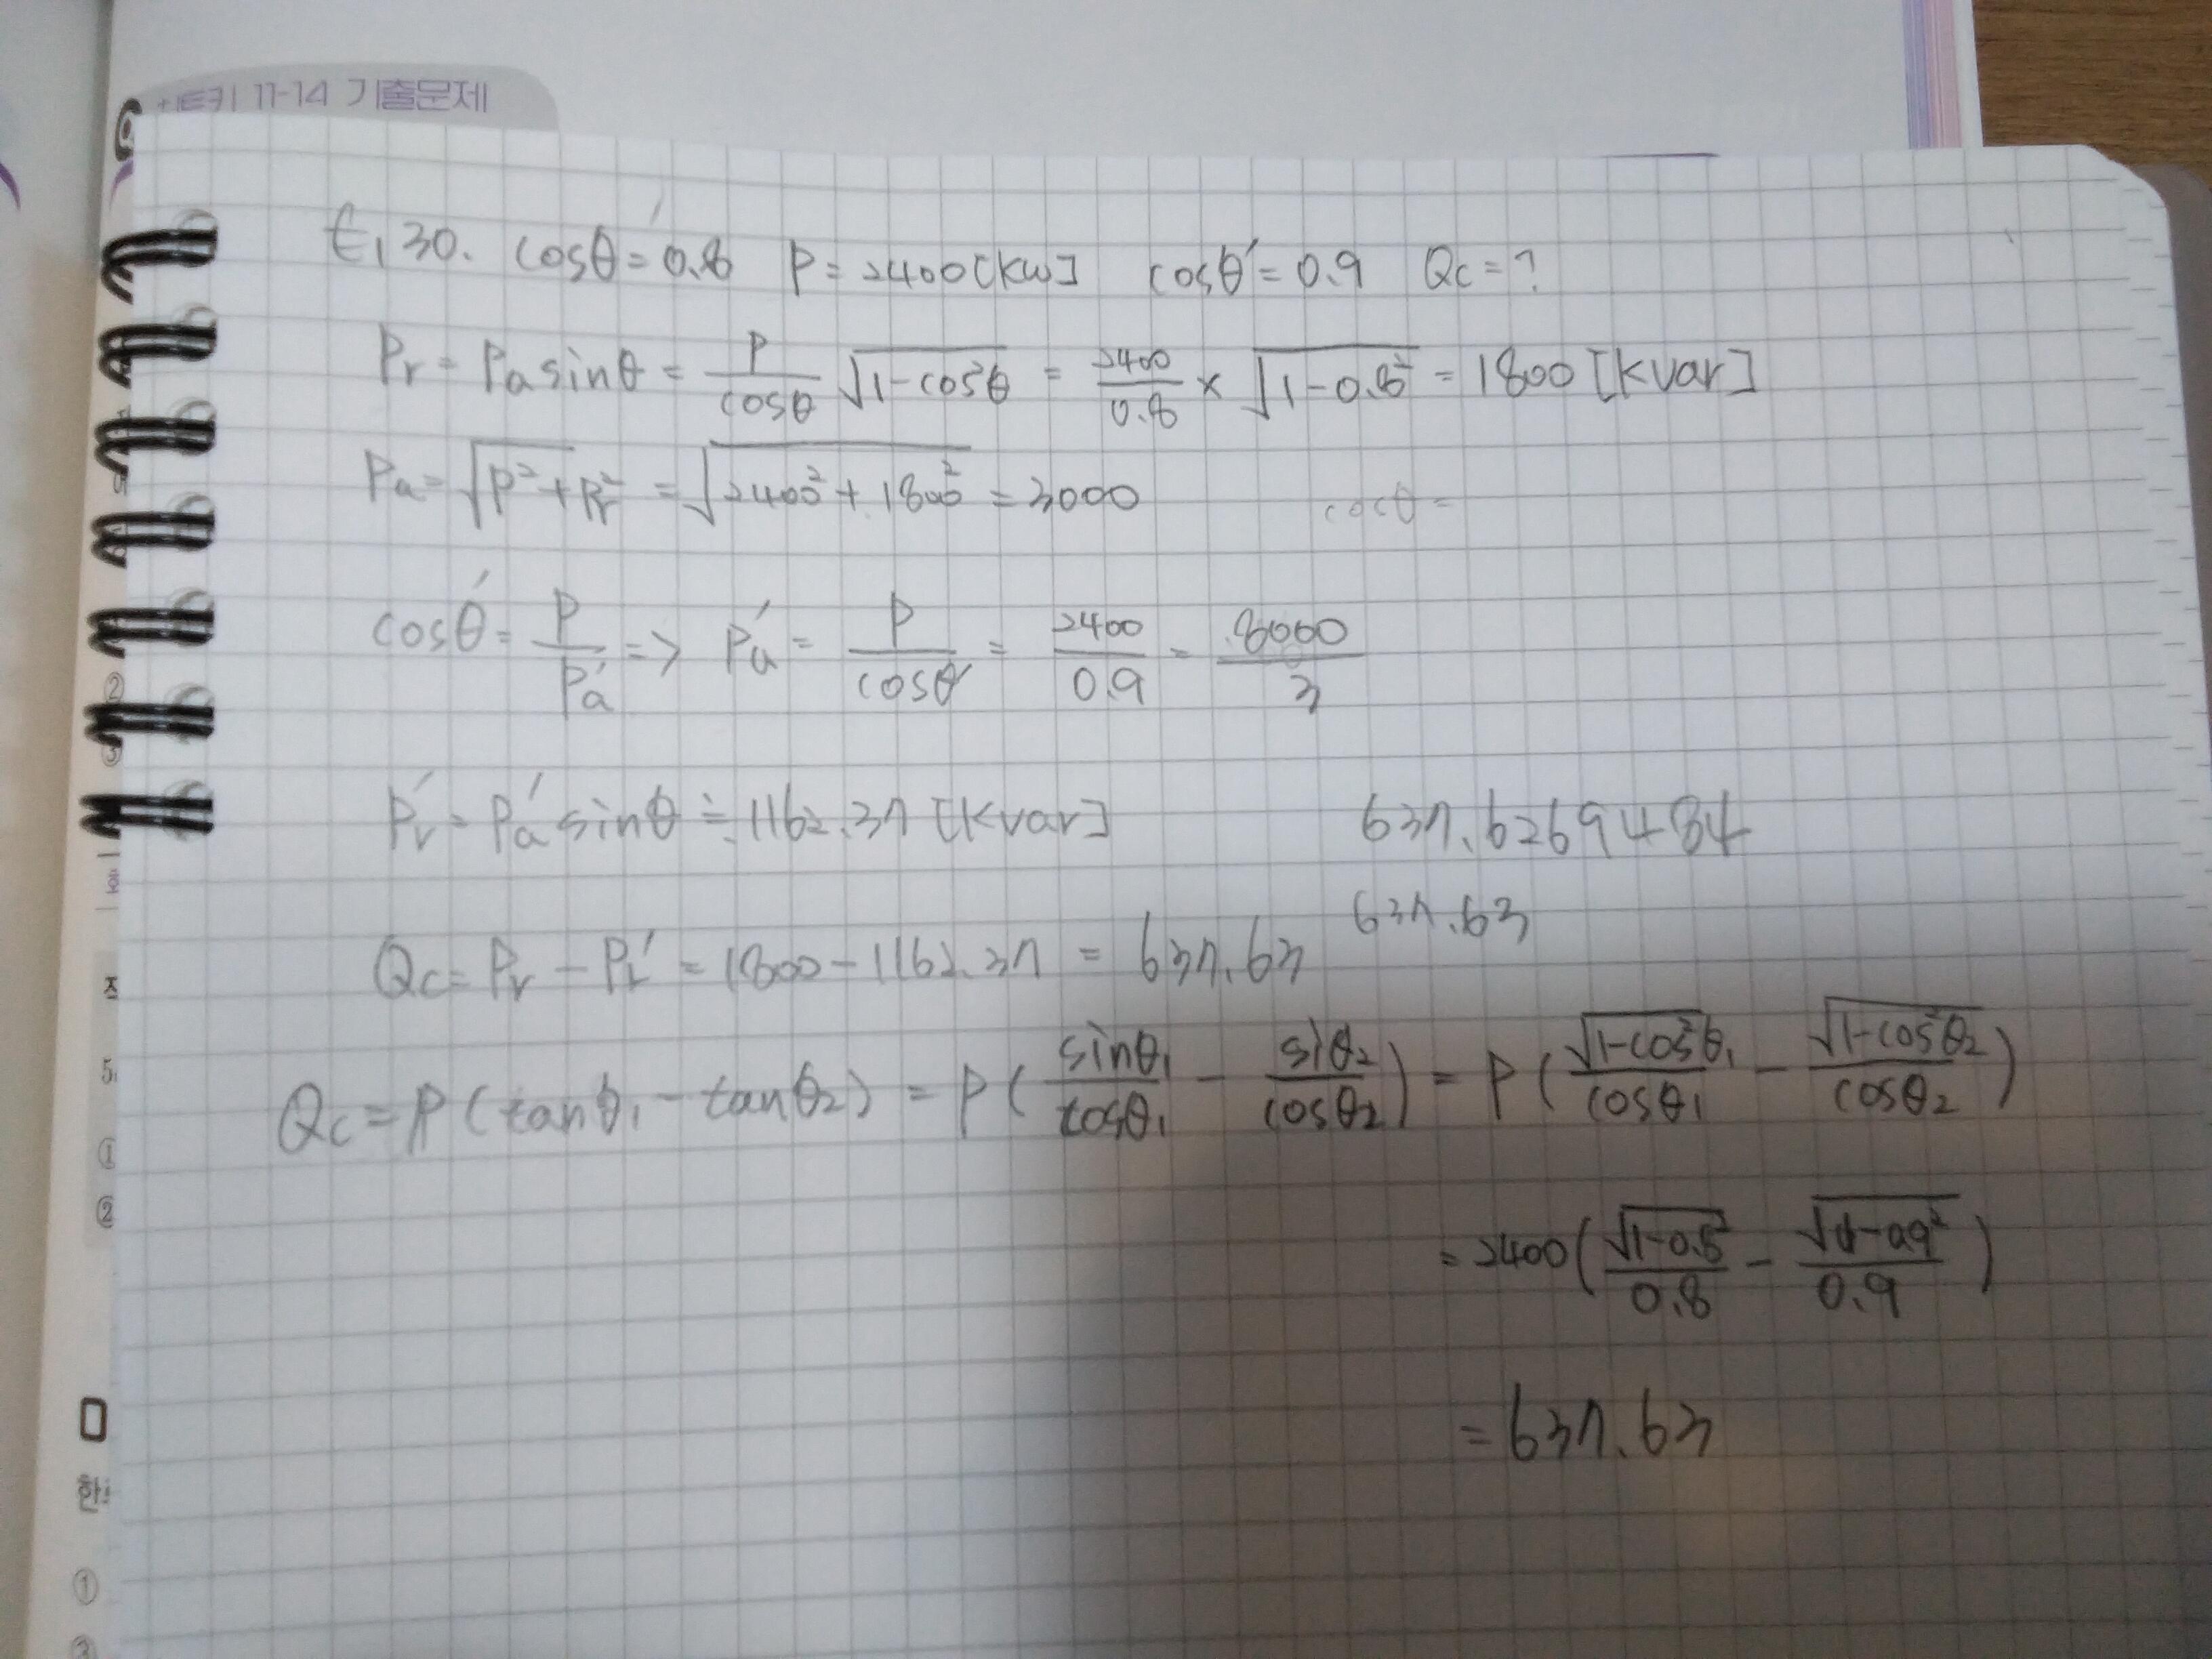 11-14 기출문제
E1 30. cosθ = 0.8 P = 2400[kW] cosθ' = 0.9 Qc = ?
Pr = Pa sinθ = P/cosθ √(1-cos²θ) = 2400/0.8 × √(1-0.8²) = 1800 [kvar]
Pa = √(P²+Pr²) = √(2400²+1800²) = 3000
cosθ =
cosθ' = P/Pa' => Pa' = P/cosθ' = 2400/0.9 = 8000/3
Pr' = Pa' sinθ' ≒ 1162.37 [kvar]
637.6269484
637.63
Qc = Pr - Pr' = 1800 - 1162.37 = 637.63
Qc = P(tanθ₁ - tanθ₂) = P(sinθ₁/cosθ₁ - siθ₂/cosθ₂) = P(√(1-cos²θ₁)/cosθ₁ - √(1-cos²θ₂)/cosθ₂)
= 2400(√(1-0.8²)/0.8 - √(1-0.9²)/0.9)
= 637.63
②
③
5.
①
②
한
①